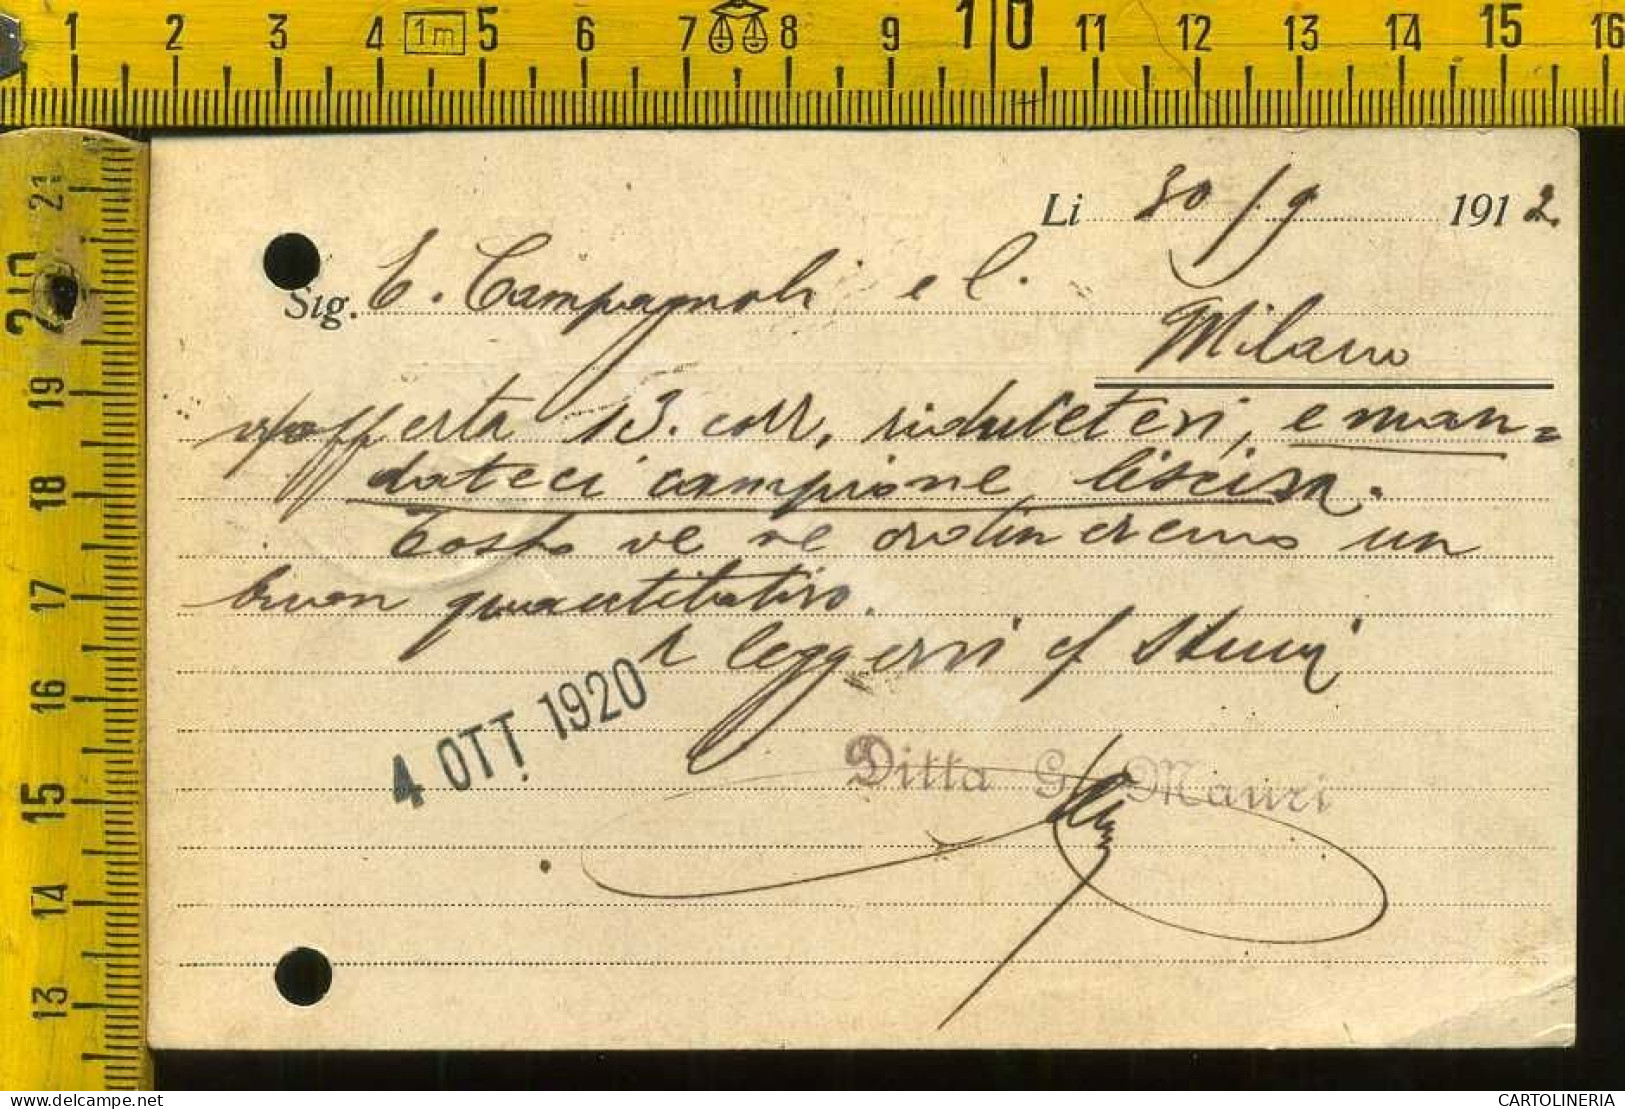 1 2 3 4 1m 5 6 7 8 9 10 11 12 13 14 15 16
21
20
19
18
17
16
15
14
13
Li 30/9 1912
Sig. E. Campagnoli e C.
Milano
offerta 13. corr, e man=
dateci campione liscisa.
Tosto ve ne ordineremo un
buon quantitativo.
4 OTT. 1920
Ditta G. Mauri
delcampe.net
CARTOLINERIA